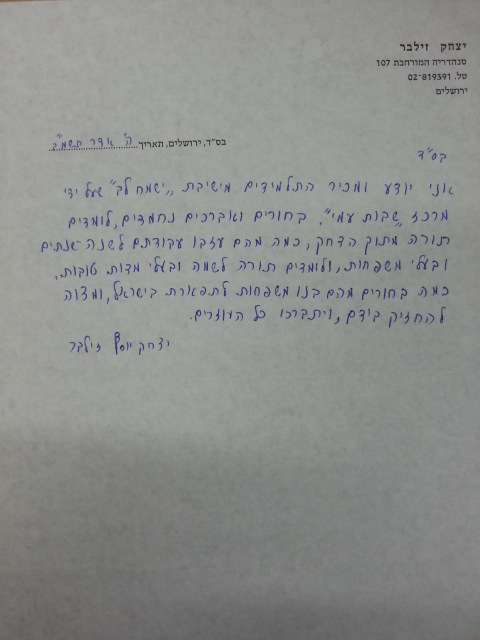 יצחק זילבר
סנהדריה המורחבת 107
טל. 02-819391
ירושלים
בס"ד, ירושלים, תאריך ה' אדר תשמ"ב
בס"ד
אני יודע ומכיר התלמידים מישיבת ,,ישמח לב" שעל ידי
מרכז ,,שבות עמי". בחורים ואברכים נחמדים, לומדים
תורה מתוך הדחק, כמה מהם עזבו עבודתם לשנה
ובעלי משפחות, ולומדים תורה לשמה ובעלי מדות טובות.
כמה בחורים מהם בנו משפחות לתפארת בישראל, ומצוה
להחזיק בידם, ויתברכו כל העוזרים.
יצחק יוסף זילבר